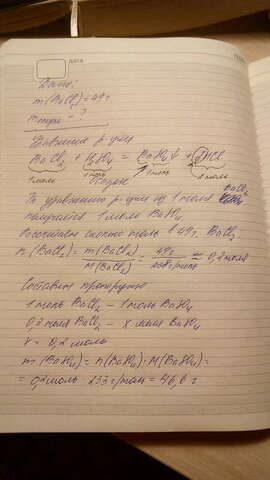 ДАТА
Дано:
m(BaCl₂) = 49 г
m - ?
Уравнение р-ции
BaCl₂ + H₂SO₄ = BaSO₄↓ + 2HCl
1 моль 1 моль 1 моль 2 моль
По уравнению р-ции из 1 моля BaCl₂
получается 1 моль BaSO₄
Рассчитаем сколько моль в 49 г. BaCl₂
n(BaCl₂) = m(BaCl₂) / M(BaCl₂) = 49 г / 208 г/моль ≈ 0,2 моля
Составим пропорцию
1 моль BaCl₂ – 1 моль BaSO₄
0,2 моля BaCl₂ – x моля BaSO₄
x = 0,2 моль
m(BaSO₄) = n(BaSO₄)·M(BaSO₄) =
= 0,2 моль · 233 г/моль = 46,6 г